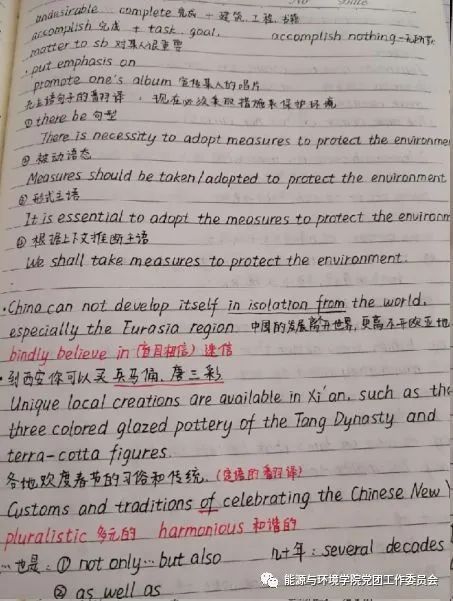 No
undesirable complete 完成 + 建筑,工程,书籍
accomplish 完成 + task, goal, accomplish nothing 一无所获
matter to sb 对某人很重要
· put emphasis on
promote one's album 宣传某人的唱片
无主语句子的翻译: 现在必须采取措施来保护环境
① there be 句型
There is necessity to adopt measures to protect the environme
② 被动语态
Measures should be taken/adopted to protect the environment
③ 形式主语
It is essential to adopt the measures to protect the environm
④ 根据上下文推断主语
We shall take measures to protect the environment.
· China can not develop itself in isolation from the world,
especially the Eurasia region. 中国的发展离开世界,更离不开欧亚地
bindly believe in (盲目相信) 迷信
· 到西安你可以买兵马俑、唐三彩
Unique local creations are available in Xi'an, such as the
three colored glazed pottery of the Tang Dynasty and
terra-cotta figures.
各地欢度春节的习俗和传统. (定语的翻译)
Customs and traditions of celebrating the Chinese New Y
pluralistic 多元的 harmonious 和谐的
…也是: ① not only… but also 几十年: several decades
② as well as
能源与环境学院党团工作委员会